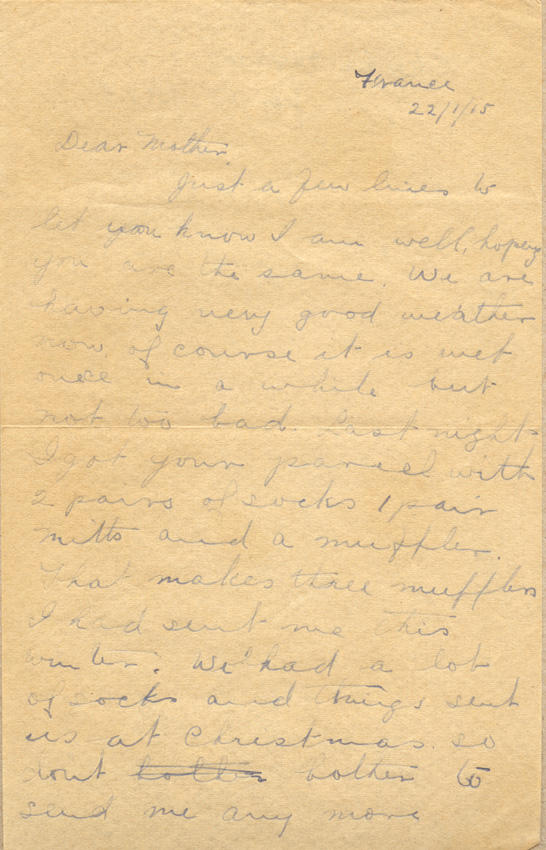 France
22/1/15
Dear Mother
Just a few lines to
let you know I am well, hopeing
you are the same. We are
having very good weather
now, of course it is wet
once in a while but
not too bad. Last night
I got your parcel with
2 pairs of socks 1 pair
mitts and a muffler.
That makes three mufflers
I had sent me this
winter. We had a lot
of socks and things sent
us at Christmas. so
dont bother to
send me any more